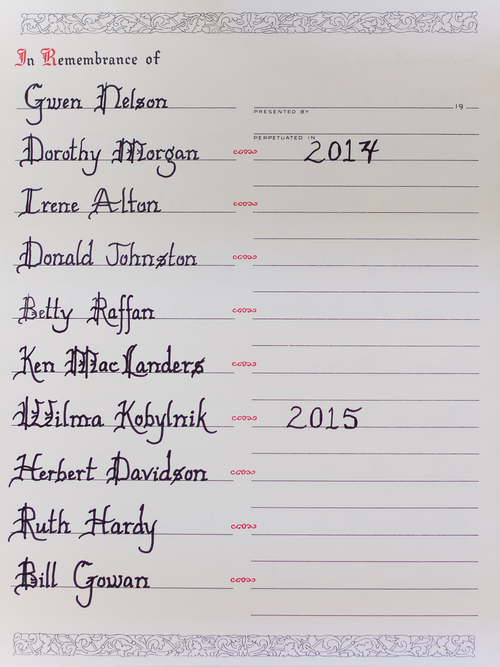 In Remembrance of
Gwen Nelson
19
PRESENTED BY
PERPETUATED IN
Dorothy Morgan 2014
Irene Alton
Donald Johnston
Betty Raffan
Ken MacLanders
Wilma Kobylnik 2015
Herbert Davidson
Ruth Hardy
Bill Gowan